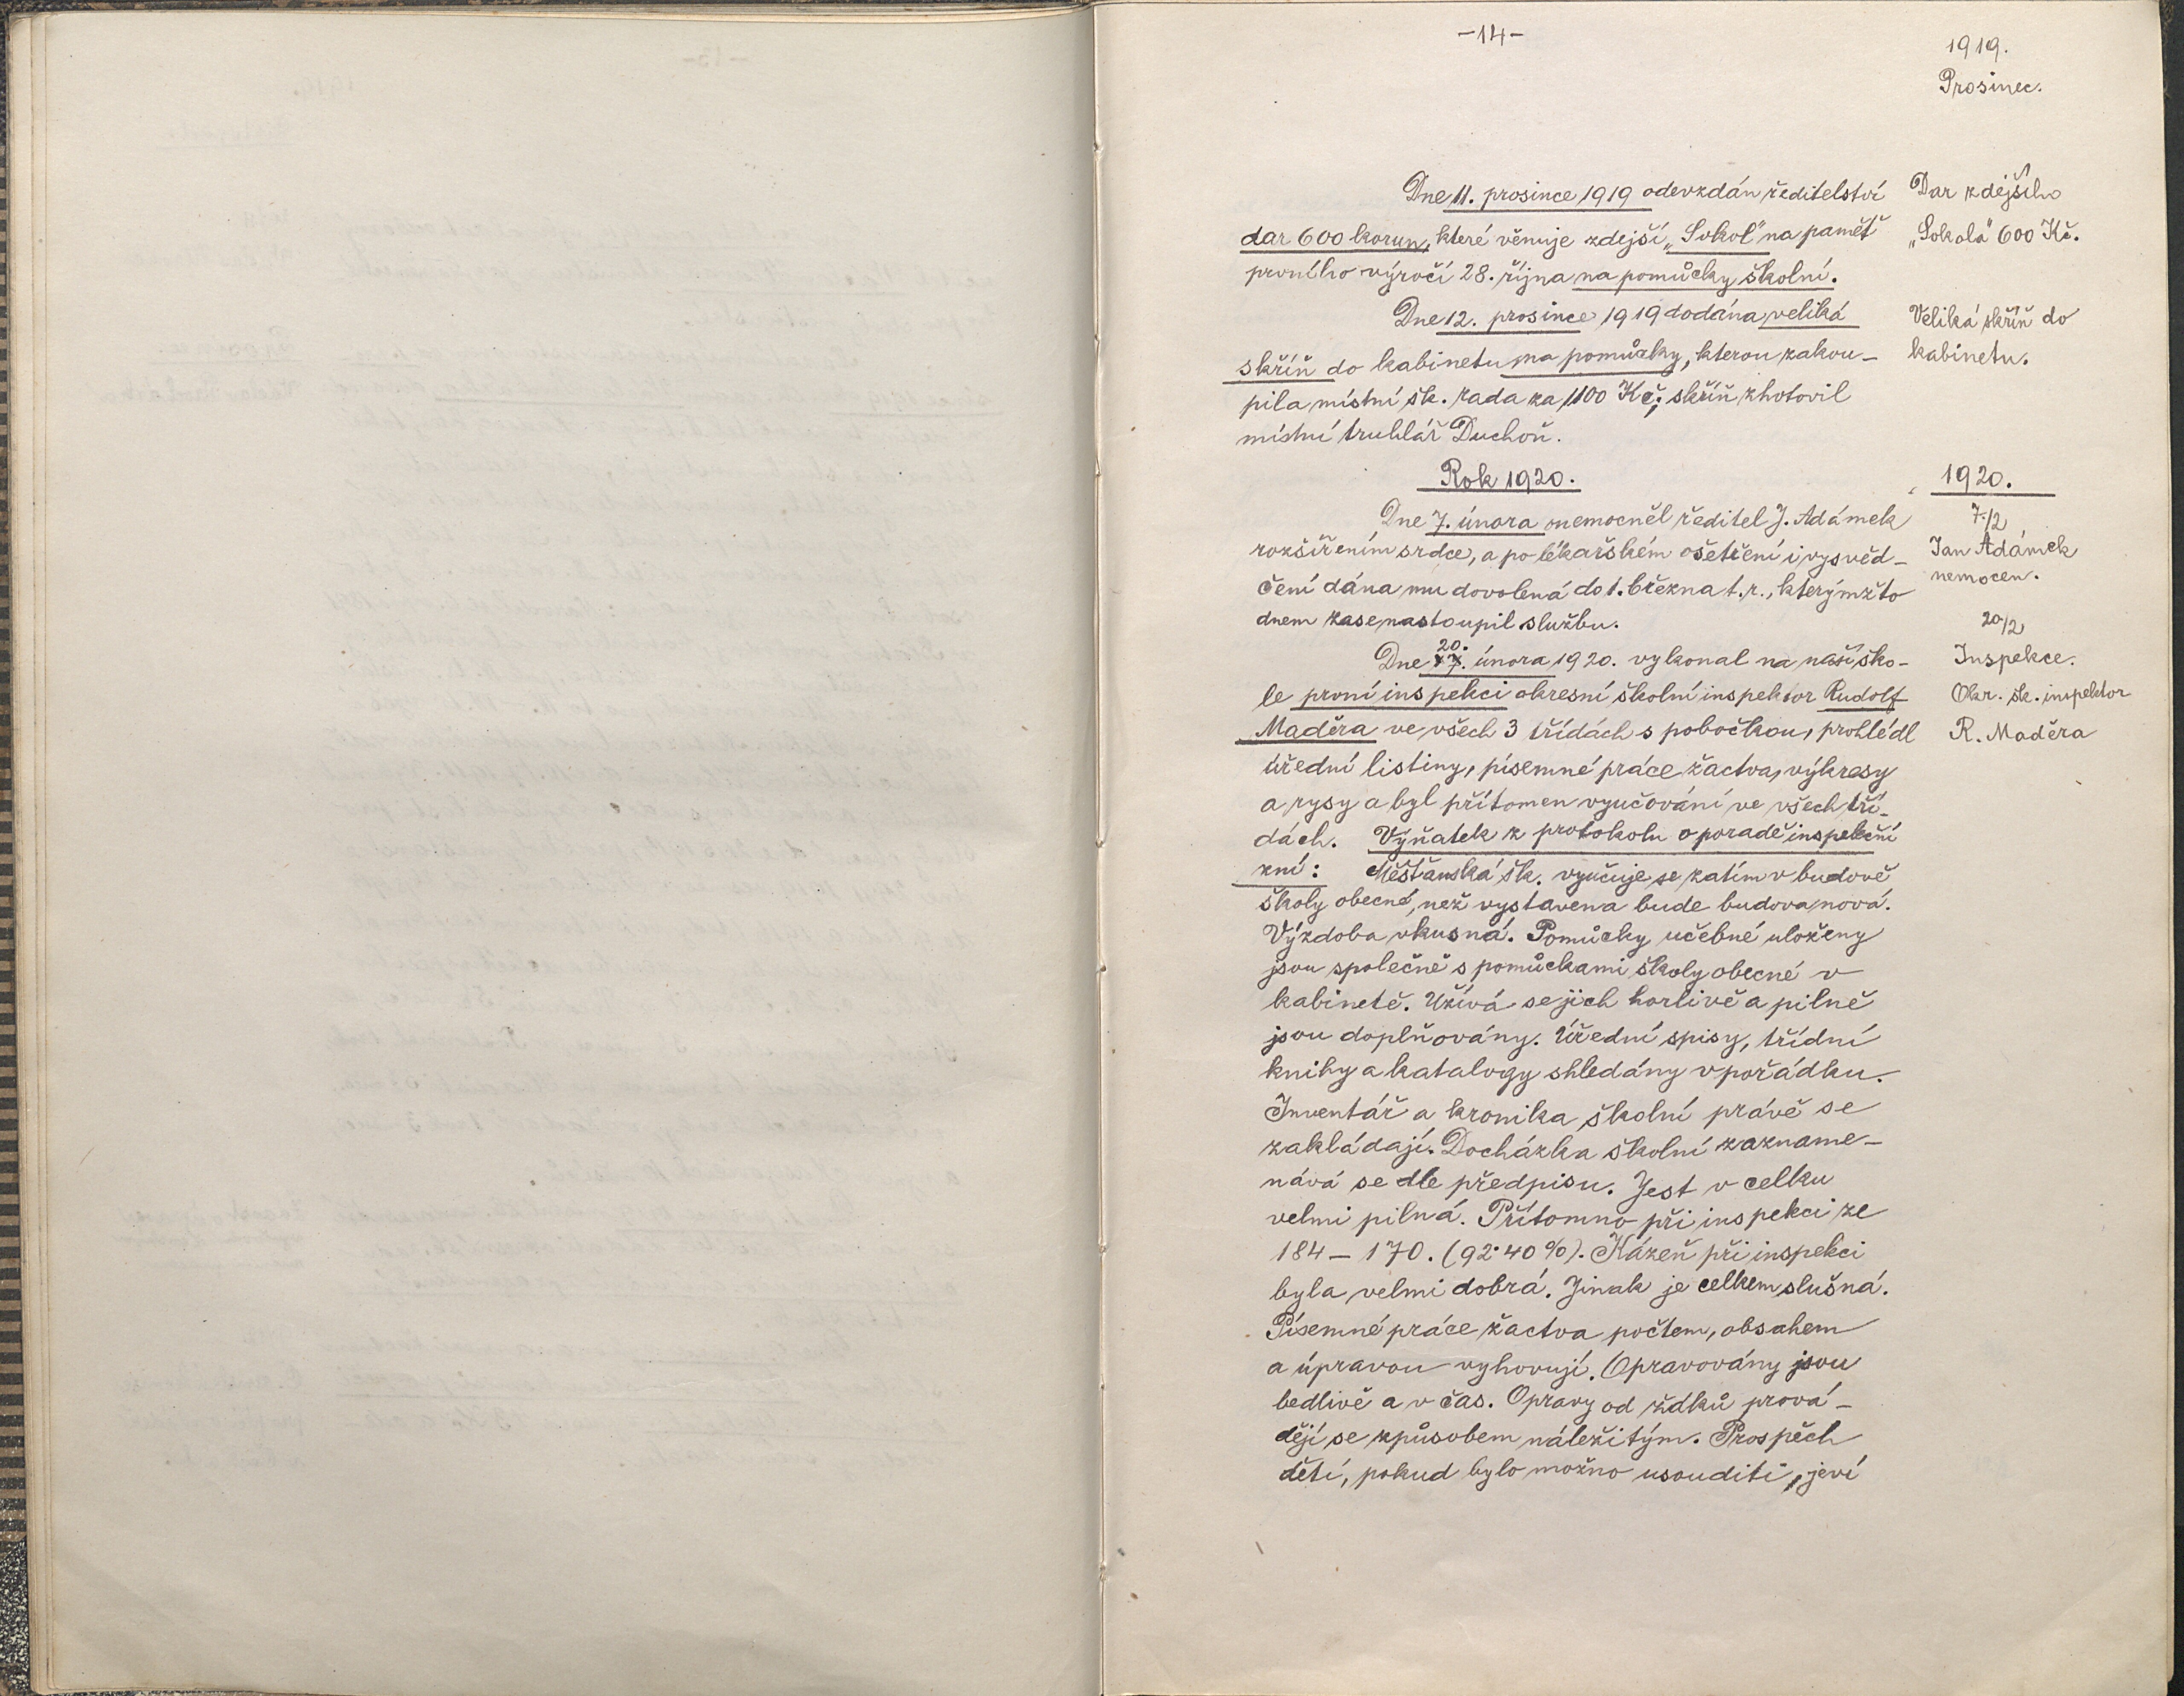 -14-
1919.
Prosinec.
Dne 11. prosince 1919 odevzdán ředitelství
dar 600 korun, které věnuje zdejší „Sokol" na paměť
prvního výročí 28. října na pomůcky školní.
Dar zdejšího
„Sokola" 600 Kč.
Dne 12. prosince 1919 dodána veliká
skříň do kabinetu na pomůcky, kterou zakou-
pila místní šk. rada za 1100 Kč; skříň zhotovil
místní truhlář Duchoň.
Veliká skříň do
kabinetu.
Rok 1920.
1920.
Dne 7. února onemocněl ředitel J. Adámek
rozšířením srdce, a po lékařském ošetření i vysvěd-
čení dána mu dovolená do 1. března t. r., kterýmžto
dnem zase nastoupil službu.
7./2
Jan Adámek
nemocen.
20.
Dne 17. února 1920. vykonal na naší ško-
le první inspekci okresní školní inspektor Rudolf
Maděra ve všech 3 třídách s pobočkou, prohlédl
úřední listiny, písemné práce žactva, výkresy
a rysy a byl přítomen vyučování ve všech tří-
dách. Výňatek z protokolu o poradě inspekční
zní: Měšťanská šk. vyučuje se zatím v budově
školy obecné, než vystavena bude budova nová.
Výzdoba vkusná. Pomůcky učebné uloženy
jsou společně s pomůckami školy obecné v
kabinetě. Užívá se jich horlivě a pilně
jsou doplňovány. Úřední spisy, třídní
knihy a katalogy shledány v pořádku.
Inventář a kronika školní právě se
zakládají. Docházka školní zazname-
nává se dle předpisu. Jest v celku
velmi pilná. Přítomno při inspekci ze
184 – 170. (92·40 %). Kázeň při inspekci
byla velmi dobrá. Jinak je celkem slušná.
Písemné práce žactva počtem, obsahem
a úpravou vyhovují. Opravovány jsou
bedlivě a v čas. Opravy od žáků prová-
dějí se způsobem náležitým. Prospěch
dětí, pokud bylo možno usouditi, jeví
20/2
Inspekce.
Okr. šk. inspektor
R. Maděra